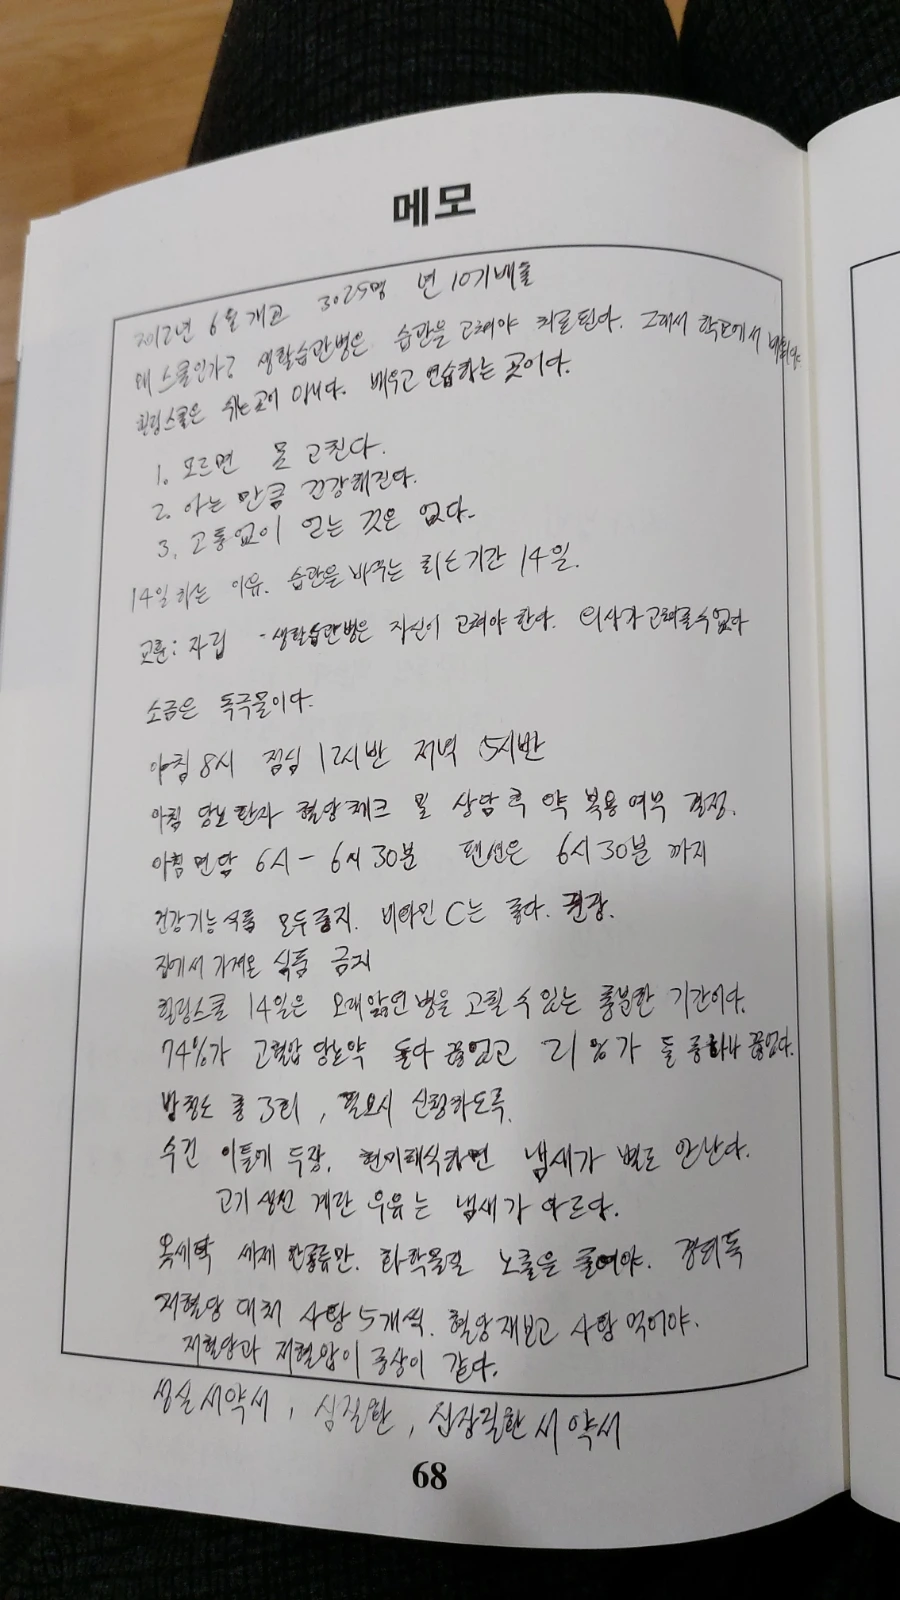 메모
2012년 6월 개교 3025명 년 10기배출
왜 스쿨인가? 생활습관병은 습관을 고쳐야 치료된다. 그래서 학교에서 배워야
힐링스쿨은 쉬는곳이 아니다. 배우고 연습하는 곳이다.
1. 모르면 못 고친다.
2. 아는 만큼 건강해진다.
3. 고통없이 얻는 것은 없다.
14일 하는 이유. 습관을 바꾸는 최소기간 14일.
교훈: 자립 - 생활습관병은 자신이 고쳐야 한다. 의사가 고쳐줄수없다
소금은 독극물이다.
아침 8시 점심 12시반 저녁 5시반
아침 당뇨환자 혈당체크 및 상담 후 약 복용 여부 결정.
아침면담 6시 - 6시 30분 펜션은 6시 30분 까지
건강기능식품 모두중지. 비타민 C는 좋다. 권장.
집에서 가져온 식품 금지
힐링스쿨 14일은 오래앓던 병을 고칠 수 있는 충분한 기간이다.
74%가 고혈압 당뇨약 둘다 끊었고 21%가 둘 중하나 끊었다.
방청소 총 3회, 필요시 신청하도록.
수건 이틀에 두장. 현미채식하면 냄새가 별로 안난다.
고기 생선 계란 우유는 냄새가 다르다.
옷세탁 세제 한종류만. 화학물질 노출을 줄여야. 경피독
저혈당 대처 사탕 5개씩. 혈당재보고 사탕 먹어야.
저혈당과 저혈압이 증상이 같다.
성실서약서, 심질환, 심장질환 서약서
68